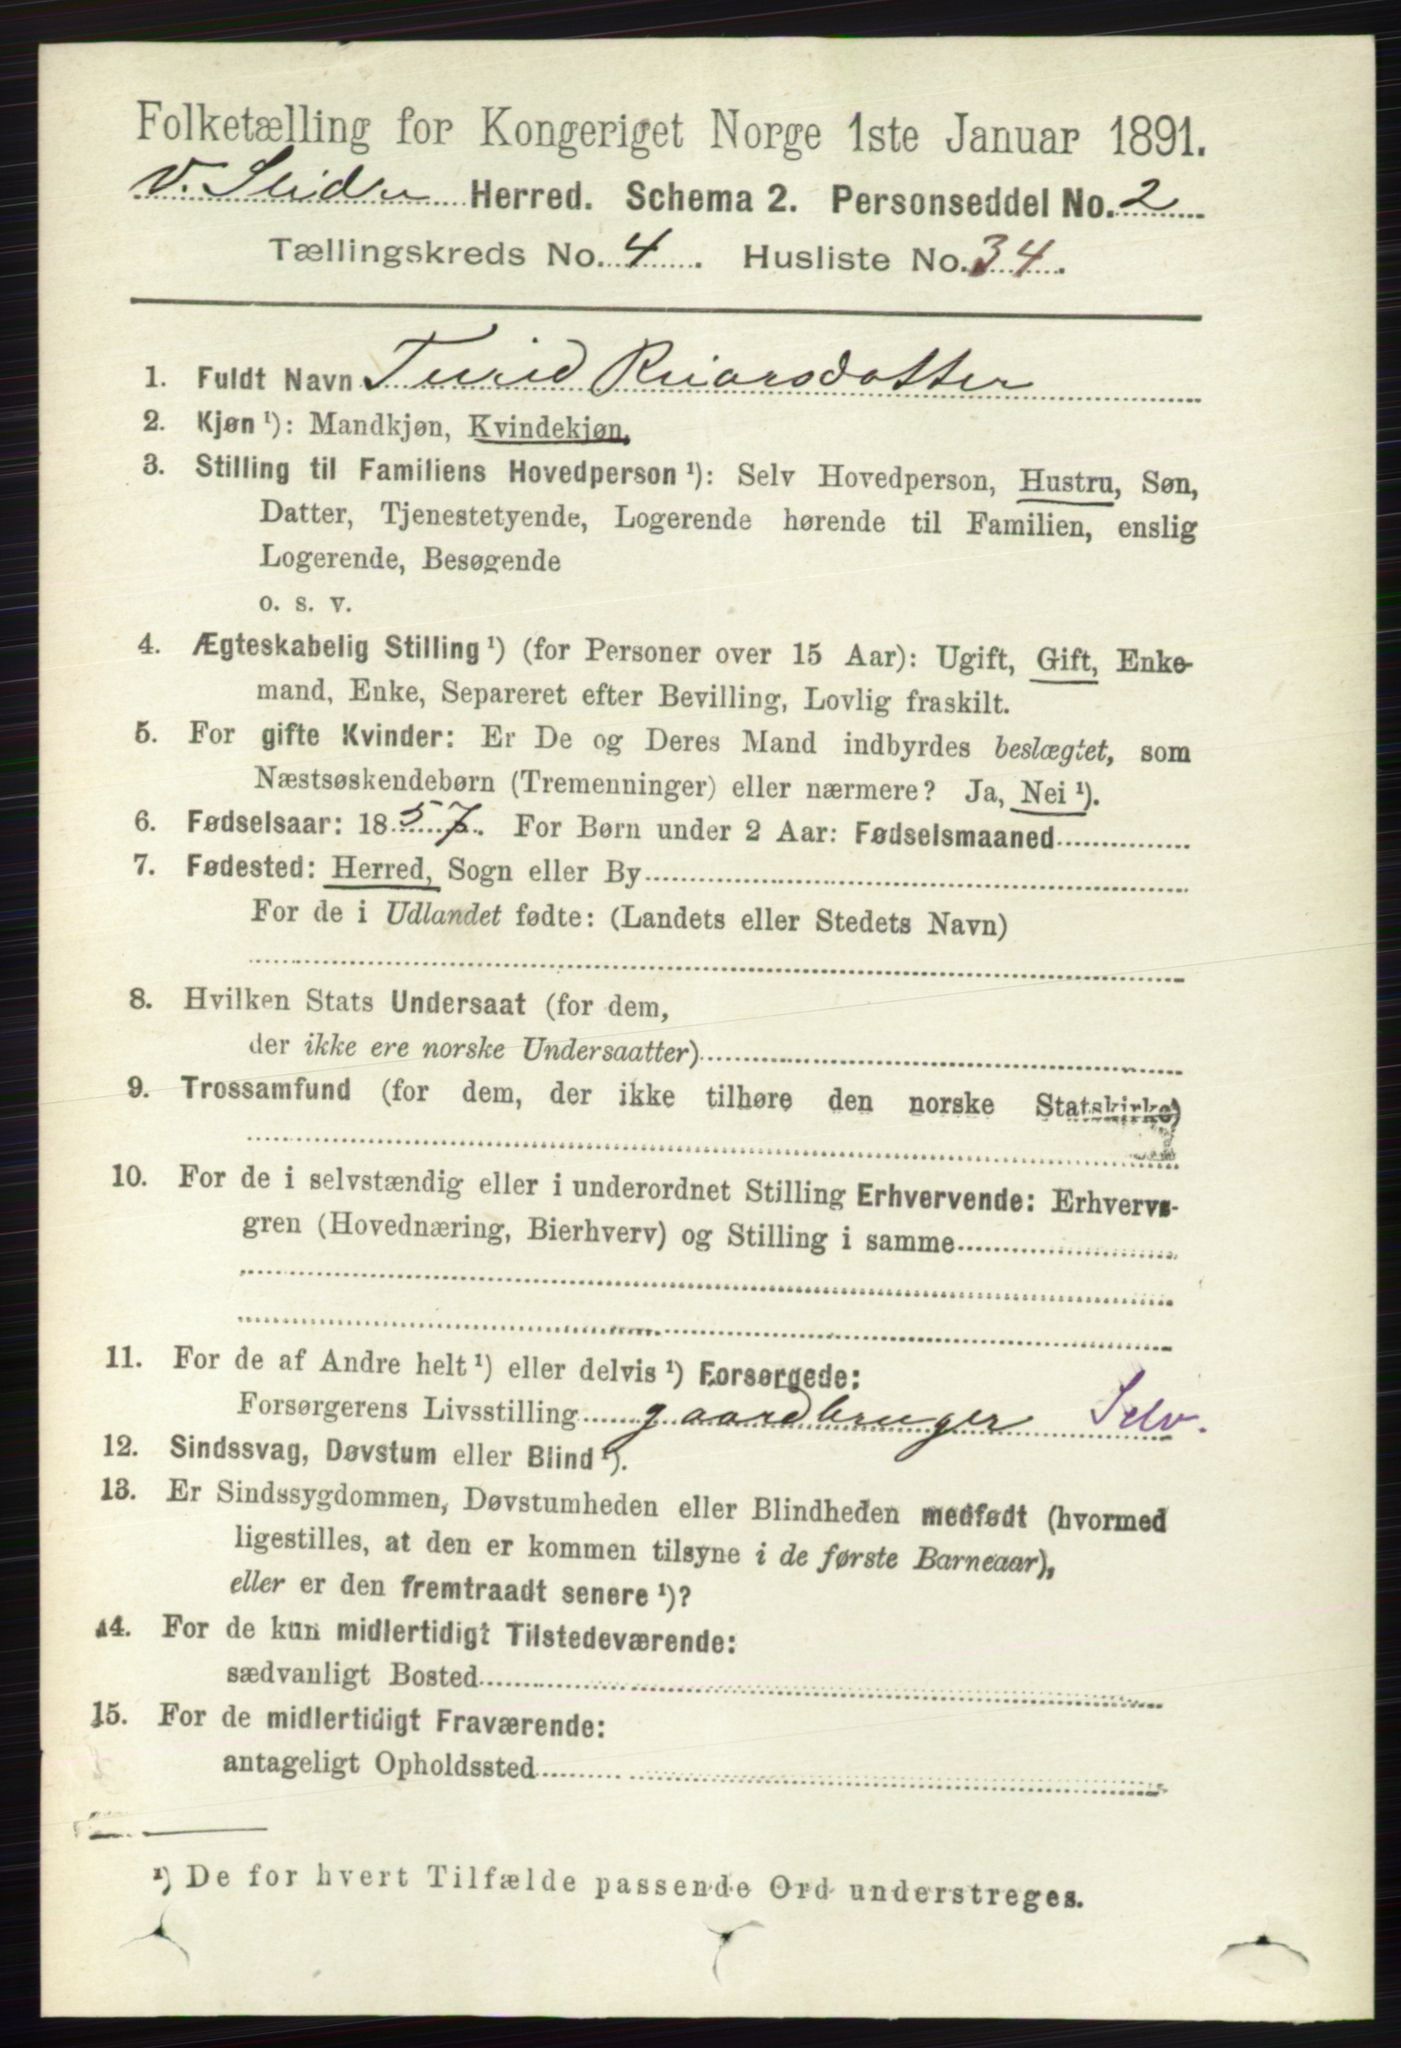 Folketælling for Kongeriget Norge 1ste Januar 1891.
V. Slidre Herred. Schema 2. Personseddel No. 2
Tællingskreds No. 4. Husliste No. 34.
1. Fuldt Navn Turid Knarsdatter
2. Kjøn ¹): Mandkjøn, Kvindekjøn.
3. Stilling til Familiens Hovedperson ¹): Selv Hovedperson, Hustru, Søn,
Datter, Tjenestetyende, Logerende hørende til Familien, enslig
Logerende, Besøgende
o. s. v.
4. Ægteskabelig Stilling ¹) (for Personer over 15 Aar): Ugift, Gift, Enke-
mand, Enke, Separeret efter Bevilling, Lovlig fraskilt.
5. For gifte Kvinder: Er De og Deres Mand indbyrdes beslægtet, som
Næstsøskendebørn (Tremenninger) eller nærmere? Ja, Nei ¹).
6. Fødselsaar: 1857. For Børn under 2 Aar: Fødselsmaaned
7. Fødested: Herred, Sogn eller By
For de i Udlandet fødte: (Landets eller Stedets Navn)
8. Hvilken Stats Undersaat (for dem,
der ikke ere norske Undersaatter)
9. Trossamfund (for dem, der ikke tilhøre den norske Statskirke)
10. For de i selvstændig eller i underordnet Stilling Erhvervende: Erhvervs-
gren (Hovednæring, Bierhverv) og Stilling i samme
11. For de af Andre helt ¹) eller delvis ¹) Forsørgede:
Forsørgerens Livsstilling gaardbruger Selv.
12. Sindssvag, Døvstum eller Blind ¹).
13. Er Sindssygdommen, Døvstumheden eller Blindheden medfødt (hvormed
ligestilles, at den er kommen tilsyne i de første Barneaar),
eller er den fremtraadt senere ¹)?
14. For de kun midlertidigt Tilstedeværende:
sædvanligt Bosted
15. For de midlertidigt Fraværende:
antageligt Opholdssted
¹) De for hvert Tilfælde passende Ord understreges.